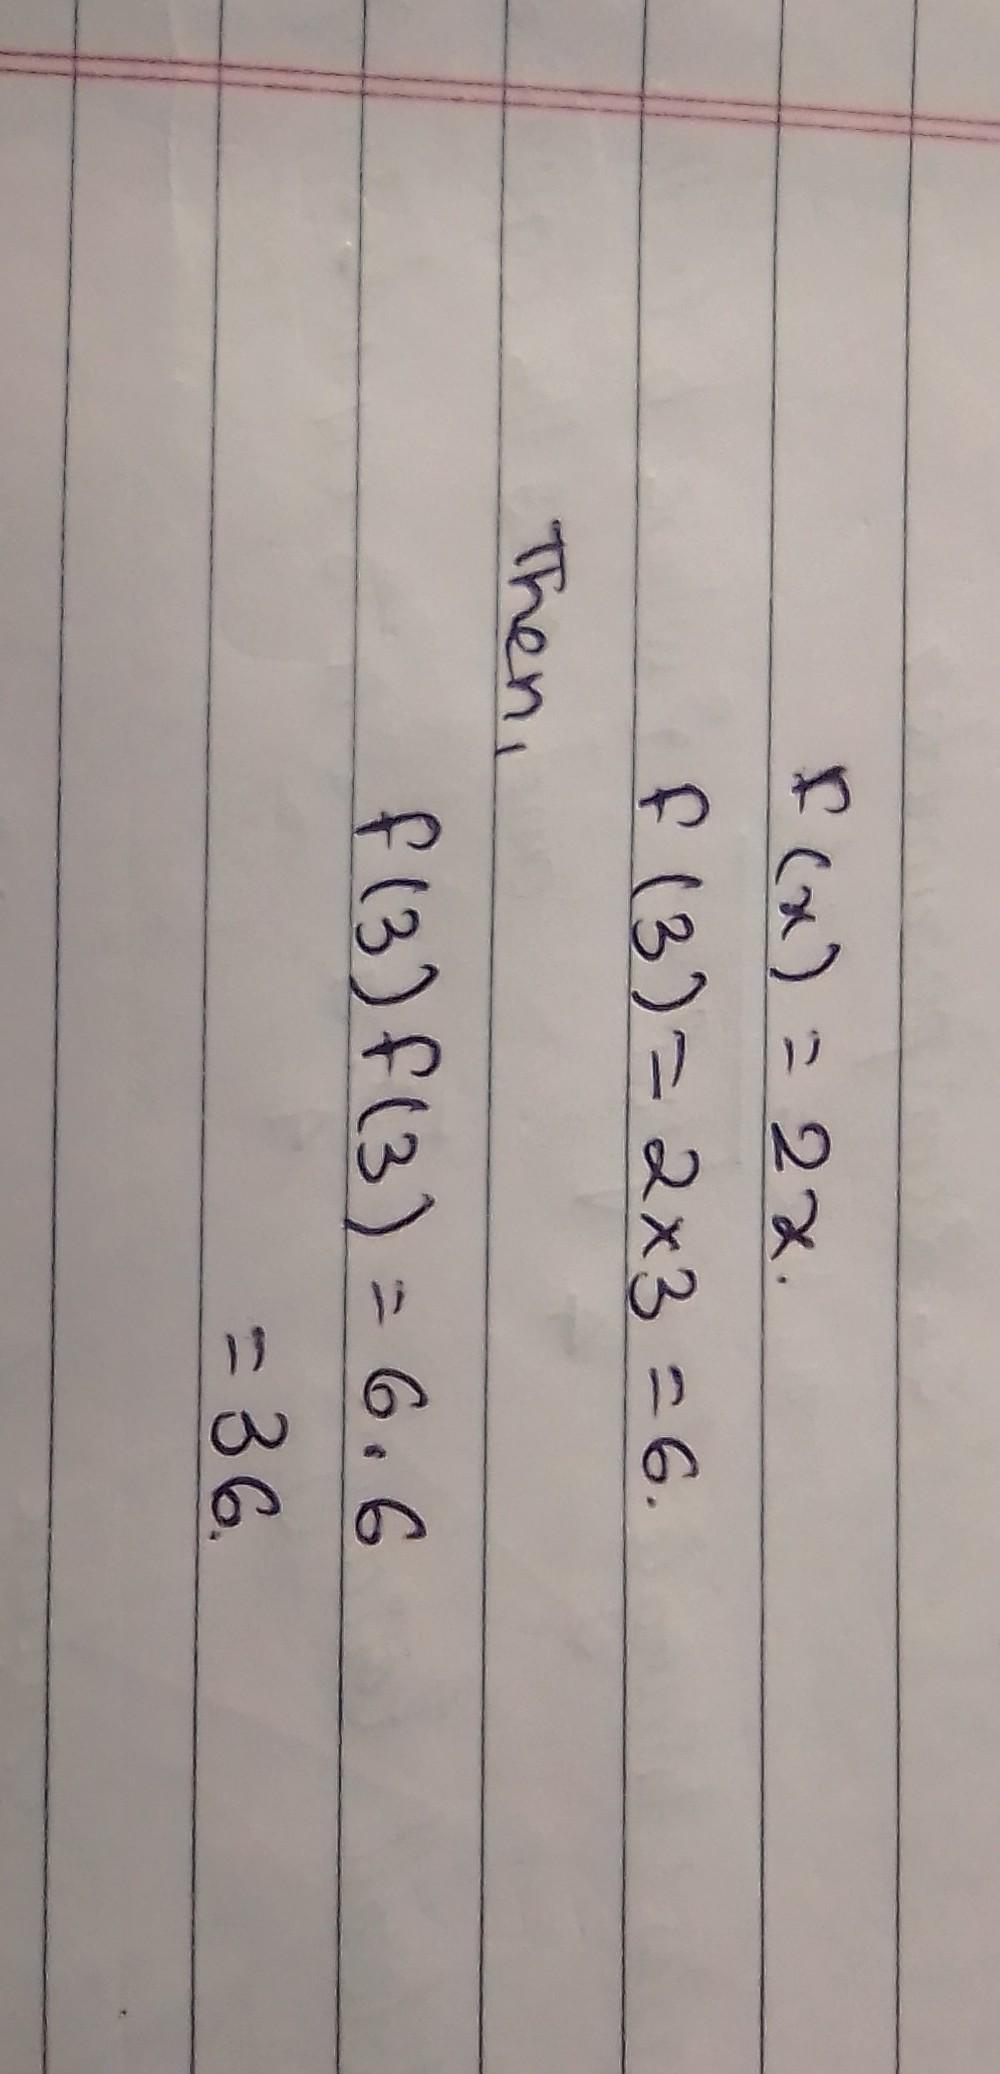 f(x) = 2x.
f(3) = 2×3 = 6.
Then,
f(3)f(3) = 6.6
= 36.